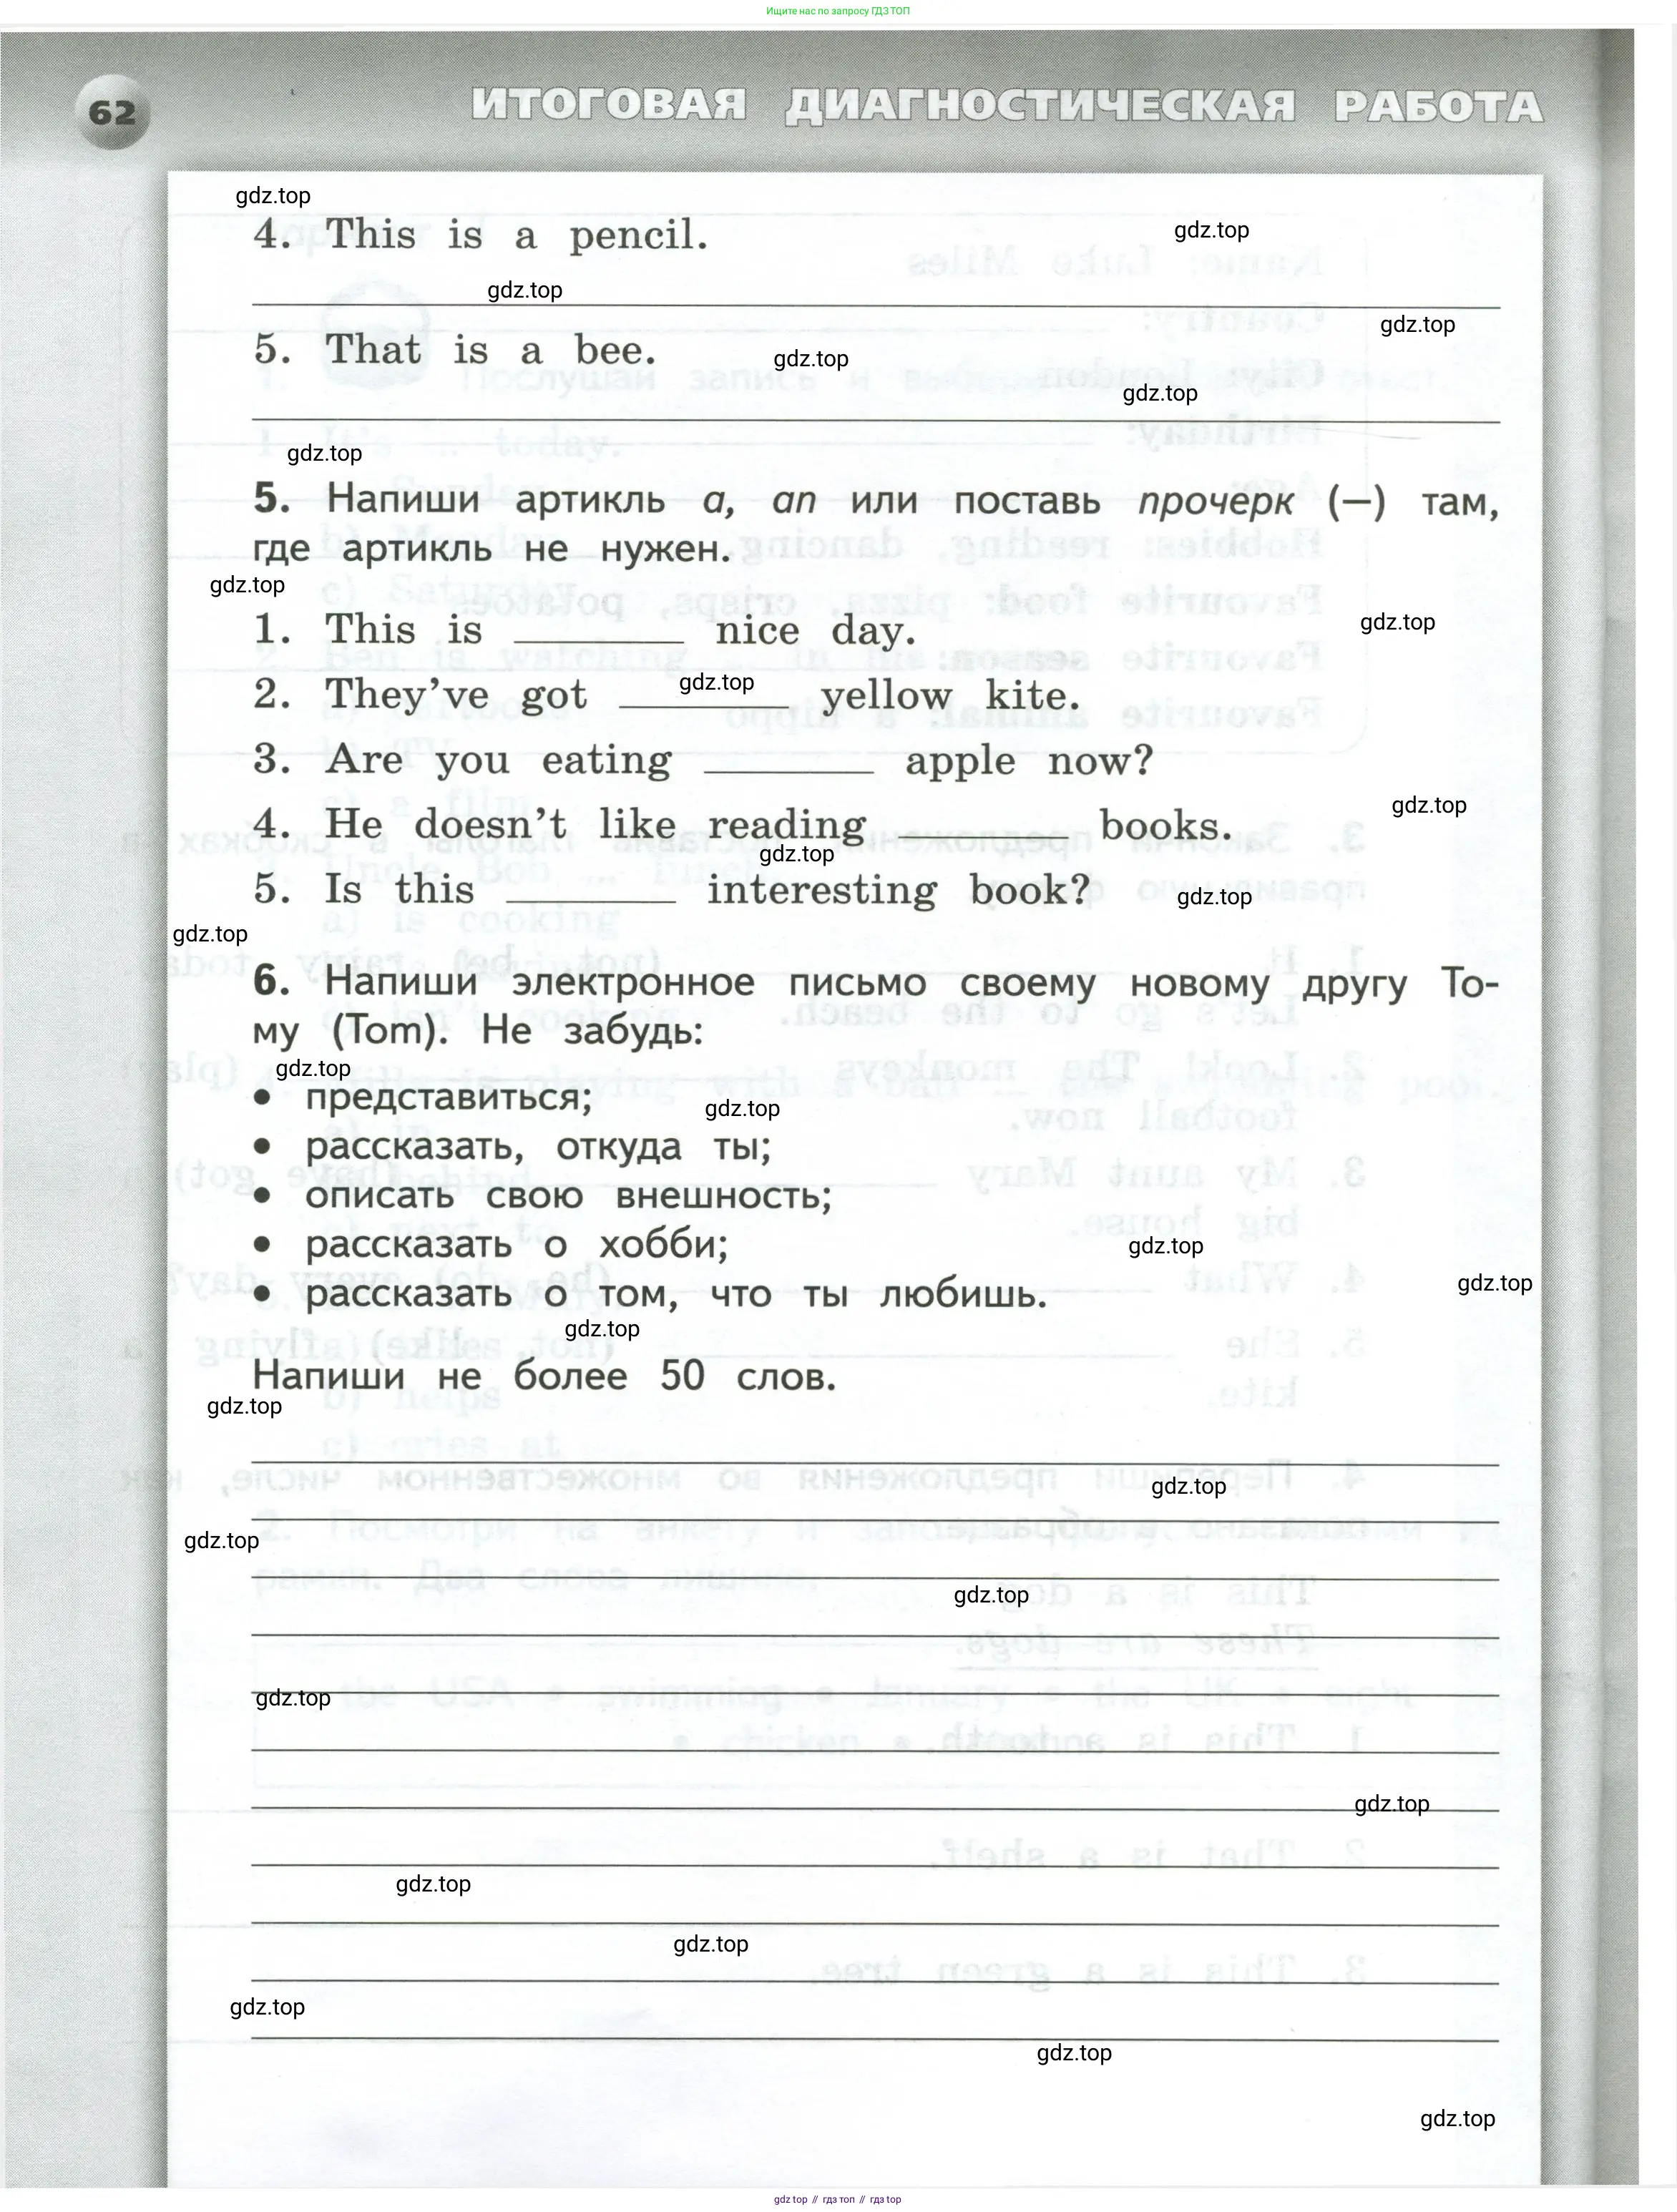 Ищите нас по запросу ГДЗ ТОП
62
ИТОГОВАЯ ДИАГНОСТИЧЕСКАЯ РАБОТА
gdz.top
4. This is a pencil.
gdz.top
gdz.top
gdz.top
5. That is a bee.
gdz.top
gdz.top
gdz.top
5. Напиши артикль a, an или поставь прочерк (—) там,
где артикль не нужен.
gdz.top
1. This is ________ nice day.
gdz.top
2. They've got ________ yellow kite.
gdz.top
3. Are you eating ________ apple now?
4. He doesn't like reading ________ books.
gdz.top
gdz.top
5. Is this ________ interesting book?
gdz.top
gdz.top
6. Напиши электронное письмо своему новому другу То-
му (Tom). Не забудь:
gdz.top
• представиться;
gdz.top
• рассказать, откуда ты;
• описать свою внешность;
• рассказать о хобби;
gdz.top
• рассказать о том, что ты любишь.
gdz.top
gdz.top
Напиши не более 50 слов.
gdz.top
gdz.top
gdz.top
gdz.top
gdz.top
gdz.top
gdz.top
gdz.top
gdz.top
gdz.top
gdz.top
gdz top // гдз топ // гдз top